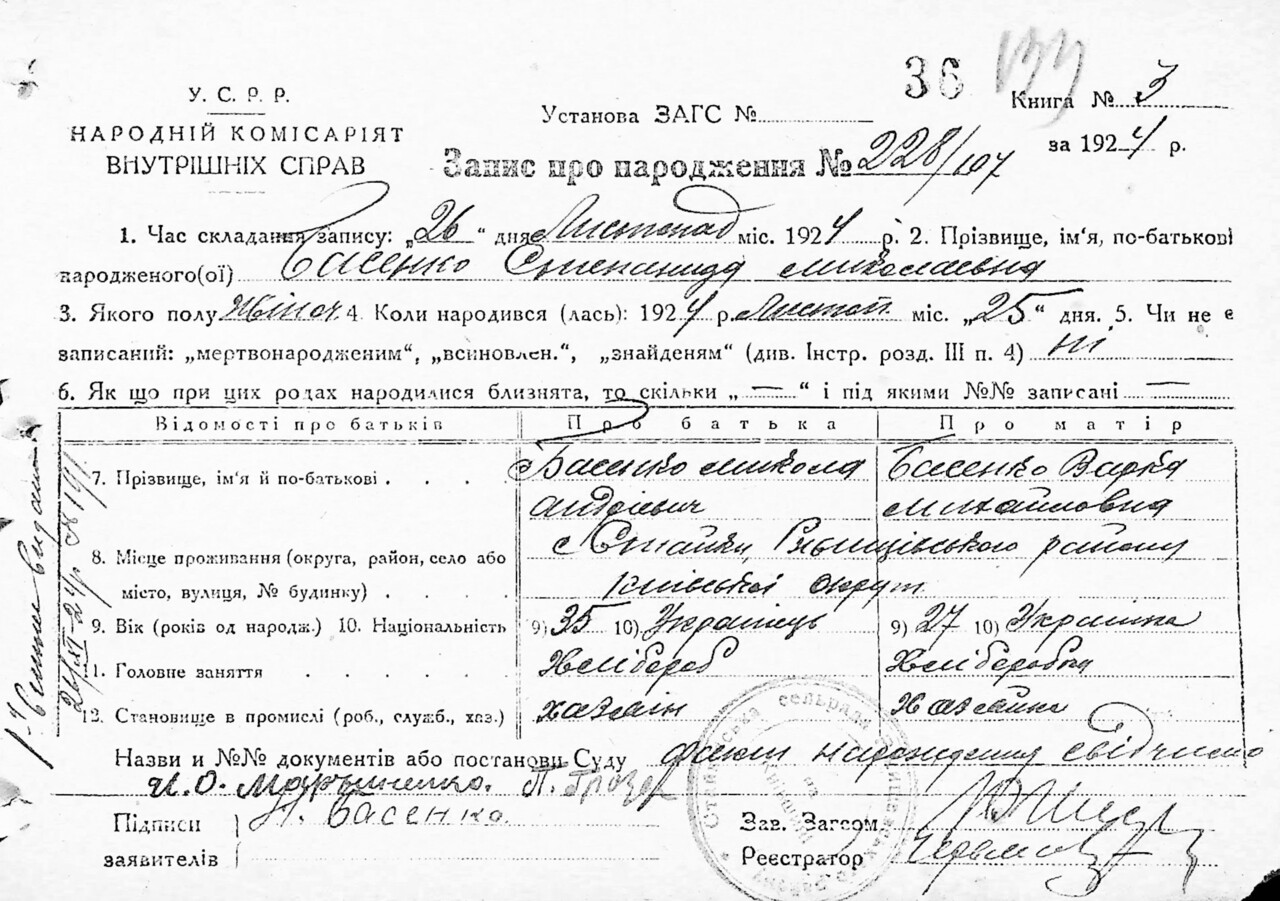 36 133
У. С. Р. Р.
НАРОДНІЙ КОМІСАРІЯТ
ВНУТРІШНІХ СПРАВ
Установа ЗАГС №
Книга № 3
за 1924 р.
Запис про народження № 228/107
1. Час складання запису: „26“ дня Листопад міс. 1924 р. 2. Прізвище, ім'я, по-батькові
народженого(ої) Басенко Степанида Миколаевна
3. Якого полу жіноч. 4. Коли народився (лась): 1924 р. Листоп. міс. „25“ дня. 5. Чи не є
записаний: „мертвонародженим“, „всиновлен.“, „знайденям“ (див. Інстр. розд. III п. 4) ні
6. Як що при цих родах народилися близнята, то скільки „—“ і під якими №№ записані —
Відомості про батьків Про батька Про матір
7. Прізвище, ім'я й по-батькові . . . . Басенко Микола Басенко Варка
Андріевич Михайловна
8. Місце проживання (округа, район, село або Стайки Ржищівського району
місто, вулиця, № будинку) . . . . київської округ
9. Вік (років од народж.) 10. Національність 9) 35 10) Українець 9) 27 10) Українка
11. Головне заняття . . . . . Хлібороб Хліборобка
12. Становище в промислі (роб., служб., хаз.) хазяін Хазяйка
Назви и №№ документів або постанови Суду факт нарождения свідчимо
И. О. Мартыненко. П. Грозе
Підписи Н. Басенко
заявителів
Зав. Загсом
Реєстратор
Стайківська сельрада Ржищівськ